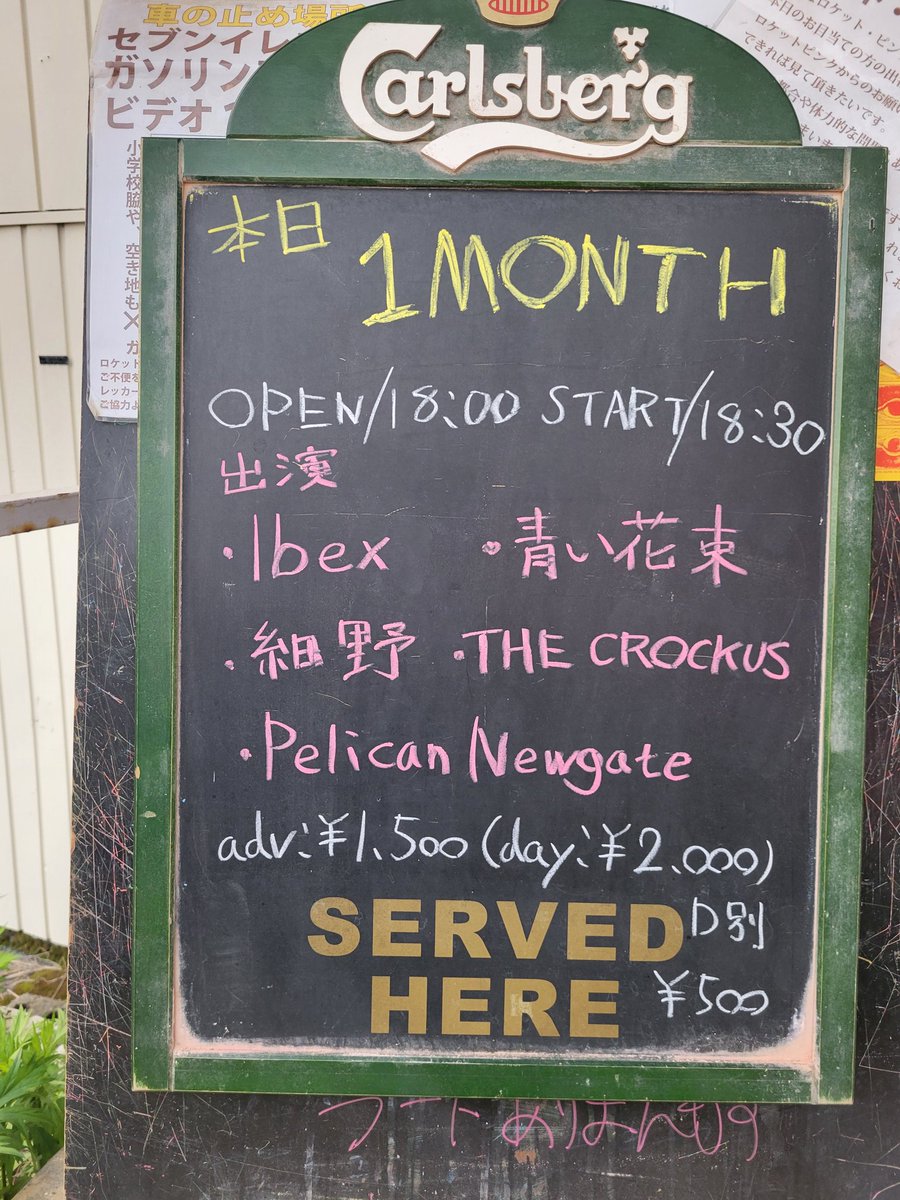 車の止め場所
セブンイレ
ガソリンス
ビデオ
小学校脇や、空き地も×
ロケット
ご不便を
レッカー
ご協力よ
ロケット・ピン
本日のお目当ての方の出
ロケットピンクからのお願い
できれば見て頂きたいです。
都合や体力的な問題
Carlsberg
本日
1 MONTH
OPEN/18:00 START/18:30
出演
・Ibex ・青い花束
・細野 ・THE CROCKUS
・Pelican Newgate
adv:¥1.500 (day:¥2.000)
SERVED D別
HERE ¥500
フード